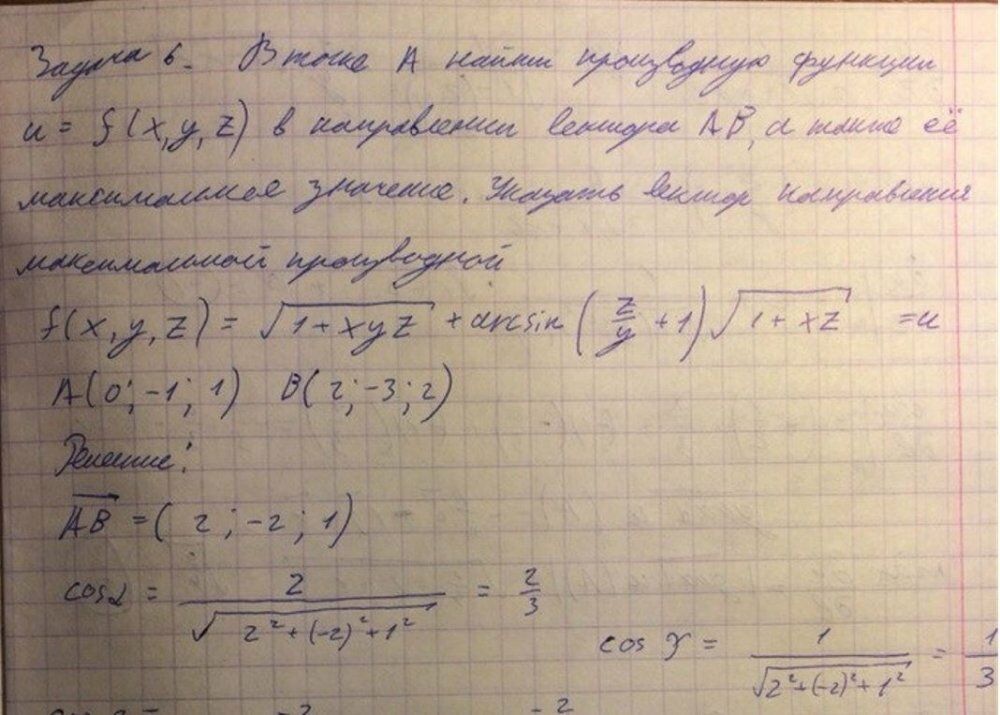 Задача 6. В точке А найти производную функции
u = f(x,y,z) в направлении вектора АВ, а также её
максимальное значение. Указать вектор направления
максимальной производной
f(x,y,z) = √(1+xyz) + arcsin(z/y + 1)√(1+xz) = u
A(0;-1;1) B(2;-3;2)
Решение:
AB = (2;-2;1)
cosα = 2/√(2²+(-2)²+1²) = 2/3
cos γ = 1/√(2²+(-2)²+1²) = 1/3